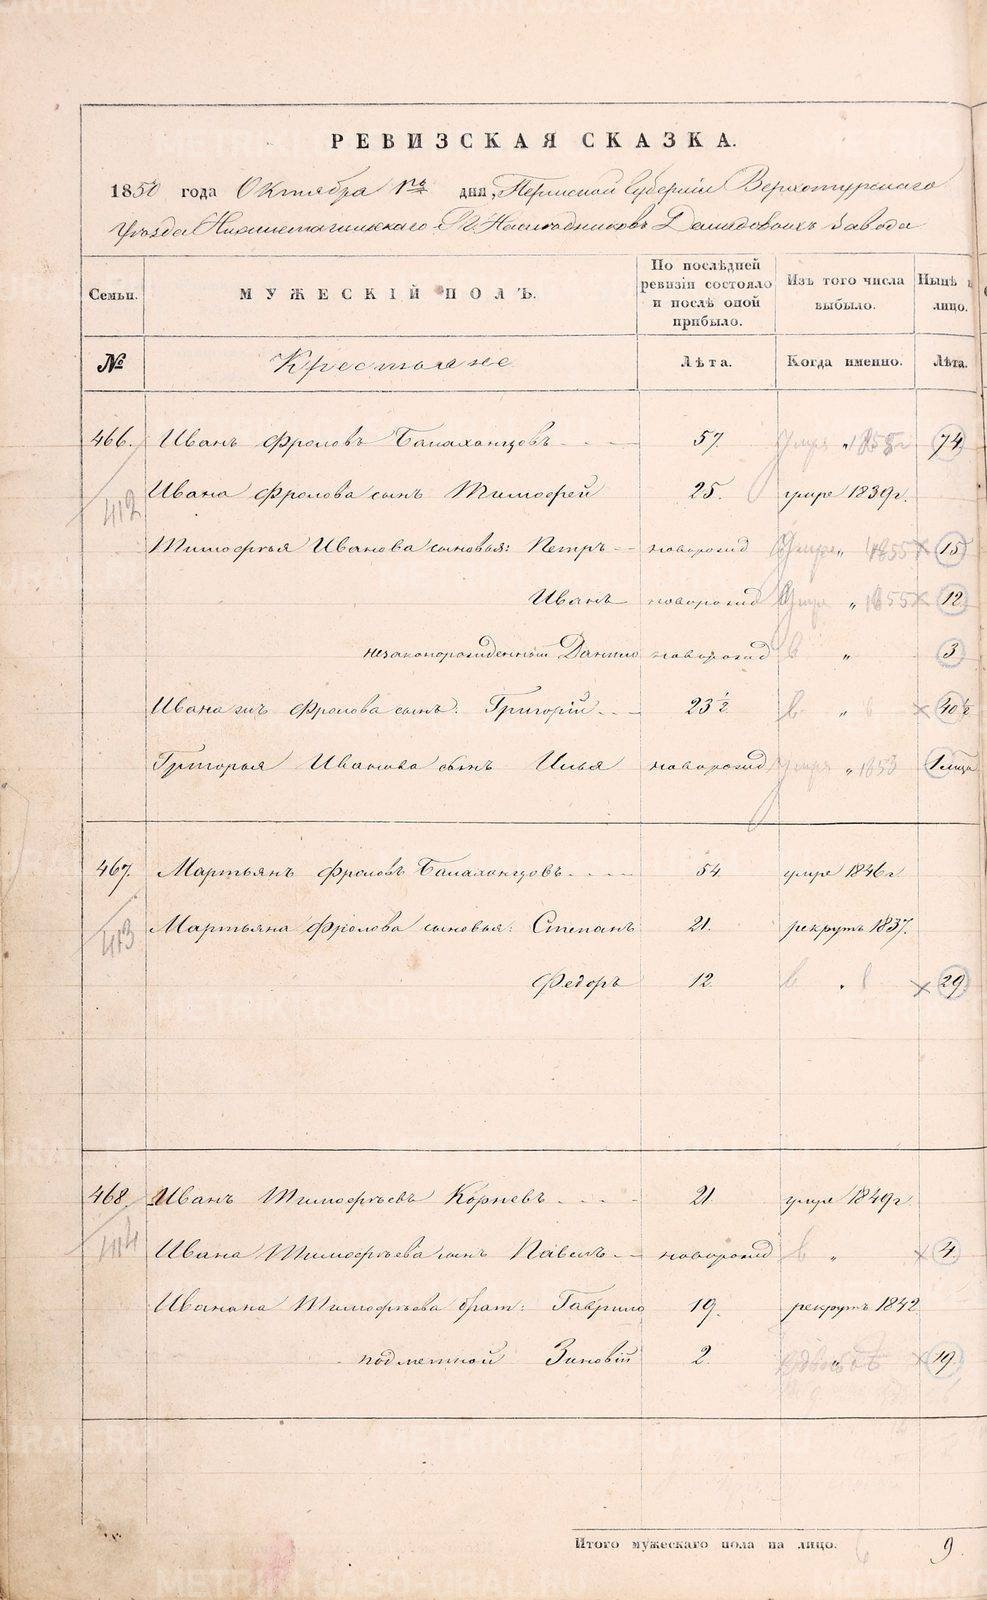 РЕВИЗСКАЯ СКАЗКА.
1850 года Октября дня, Пермской Губернiи Верхотурскаго
Уезда Нижнетагильскаго Г.г. Наследниковъ Демидовыхъ Завода
Семьи. МУЖЕСКІЙ ПОЛЪ. По послѣдней ревизіи состояло и послѣ оной прибыло. Изъ того числа выбыло. Нынѣ на лицо.
№ Крестьяне Лѣта. Когда именно. Лѣта.
466. Иванъ Фроловъ Балахонцовъ 57. 74
412 Ивана Фролова сынъ Тимофей 25. умре 1839г.
Тимофѣя Иванова сыновья: Петръ новорожд умре „ 1855 15
Иванъ новорожд умре „ 1855 12
незаконорожденный Данило новорожд „ 3
Ивана жъ Фролова сынъ: Григорiй 23 1/2 „ 40 1/2
Григорья Иванова сынъ Илья новорожд умре „ 1853 1 мца
467. Мартьянъ Фроловъ Балахонцовъ 54 умре 1846г
413 Мартьяна Фролова сыновья: Степанъ 21. рекрутъ 1837.
Федоръ 12 29
468. Иванъ Тимофѣевъ Корневъ 21 умре 1849г
414 Ивана Тимофѣева сынъ Павелъ новорожд „ 4
Иванана Тимофѣева брат: Гаврило 19. рекрутъ 1842
подметной Зиновiй 2. 19
Итого мужескаго пола на лицо. 9.